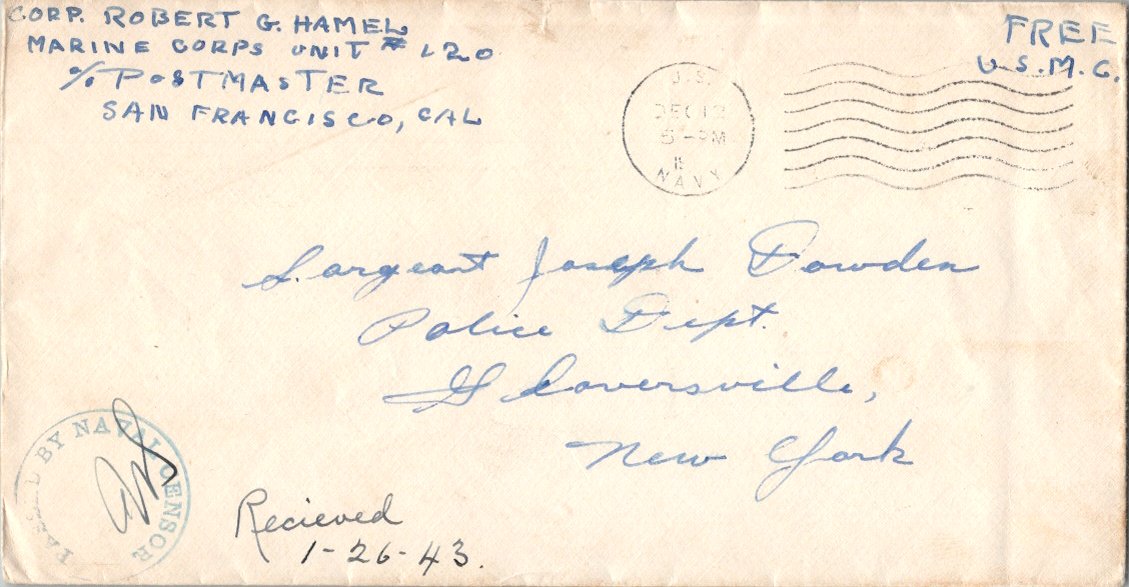 CORP. ROBERT G. HAMEL
MARINE CORPS UNIT # 120
℅ POSTMASTER
SAN FRANCISCO, CAL
FREE
U.S.M.C.
U.S.
DEC 12
5-PM
NAVY
Sargeant Joseph Dowden
Police Dept.
Gloversville,
New York
PASSED BY NAVAL CENSOR
Recieved
1-26-43.